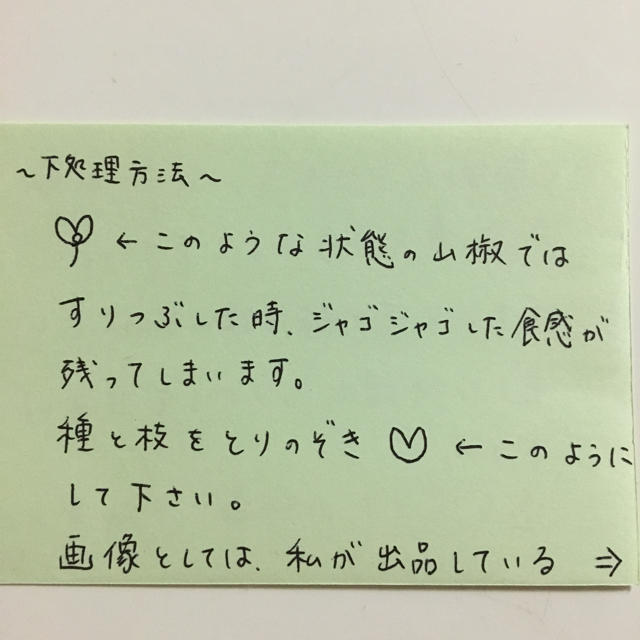 ～下処理方法～
←このような状態の山椒では
すりつぶした時、ジャゴジャゴした食感が
残ってしまいます。
種と枝をとりのぞき ←このように
して下さい。
画像としては、私が出品している ⇒